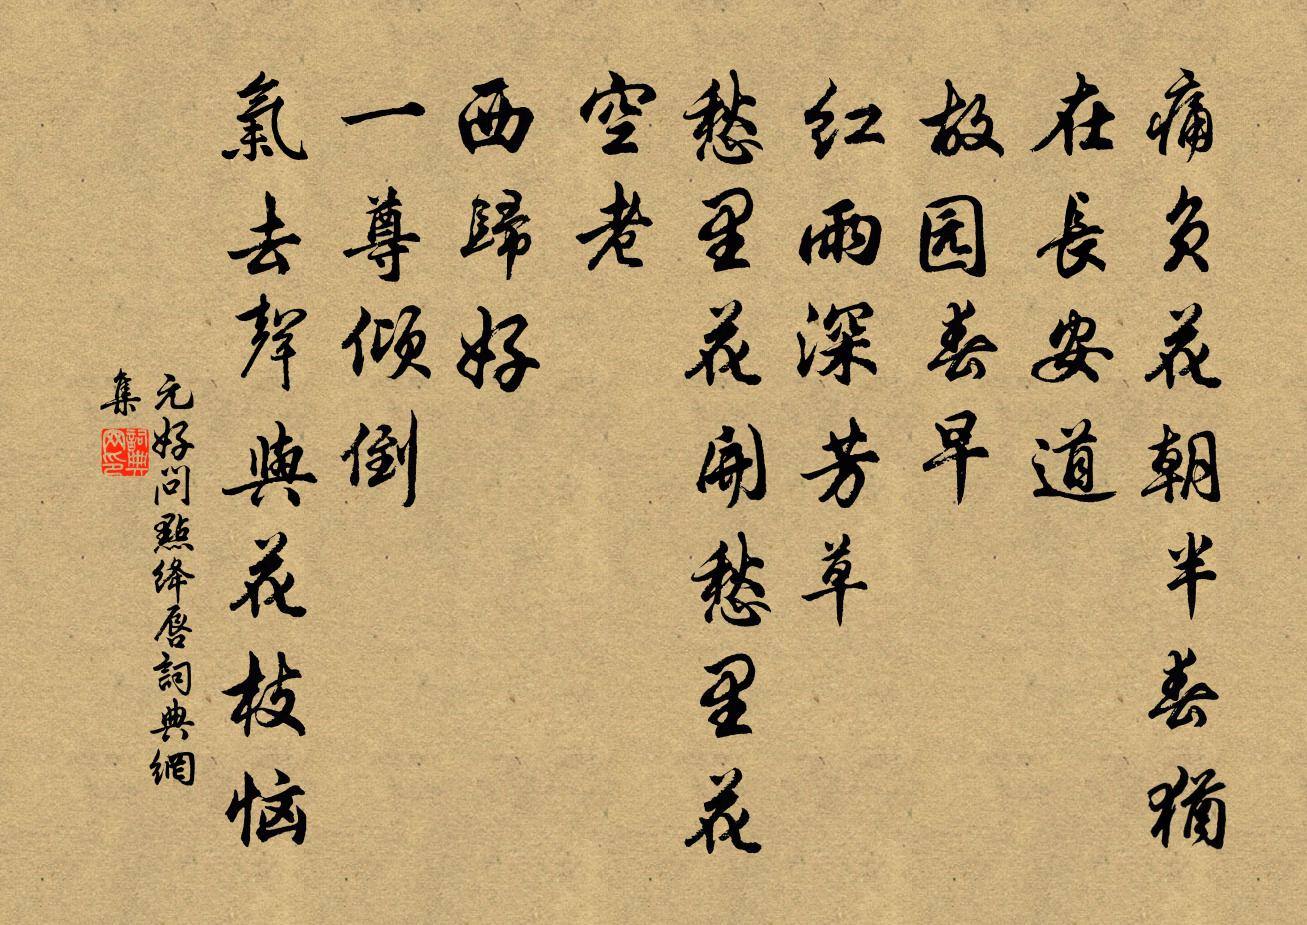 痛负花朝半春猶
在長安道
故园春早
红雨深芳草
愁里花開愁里花
空老
西歸好
一尊倾倒
氣去聲與花枝恼
元好問點绛唇詞典網
集
詞典网印